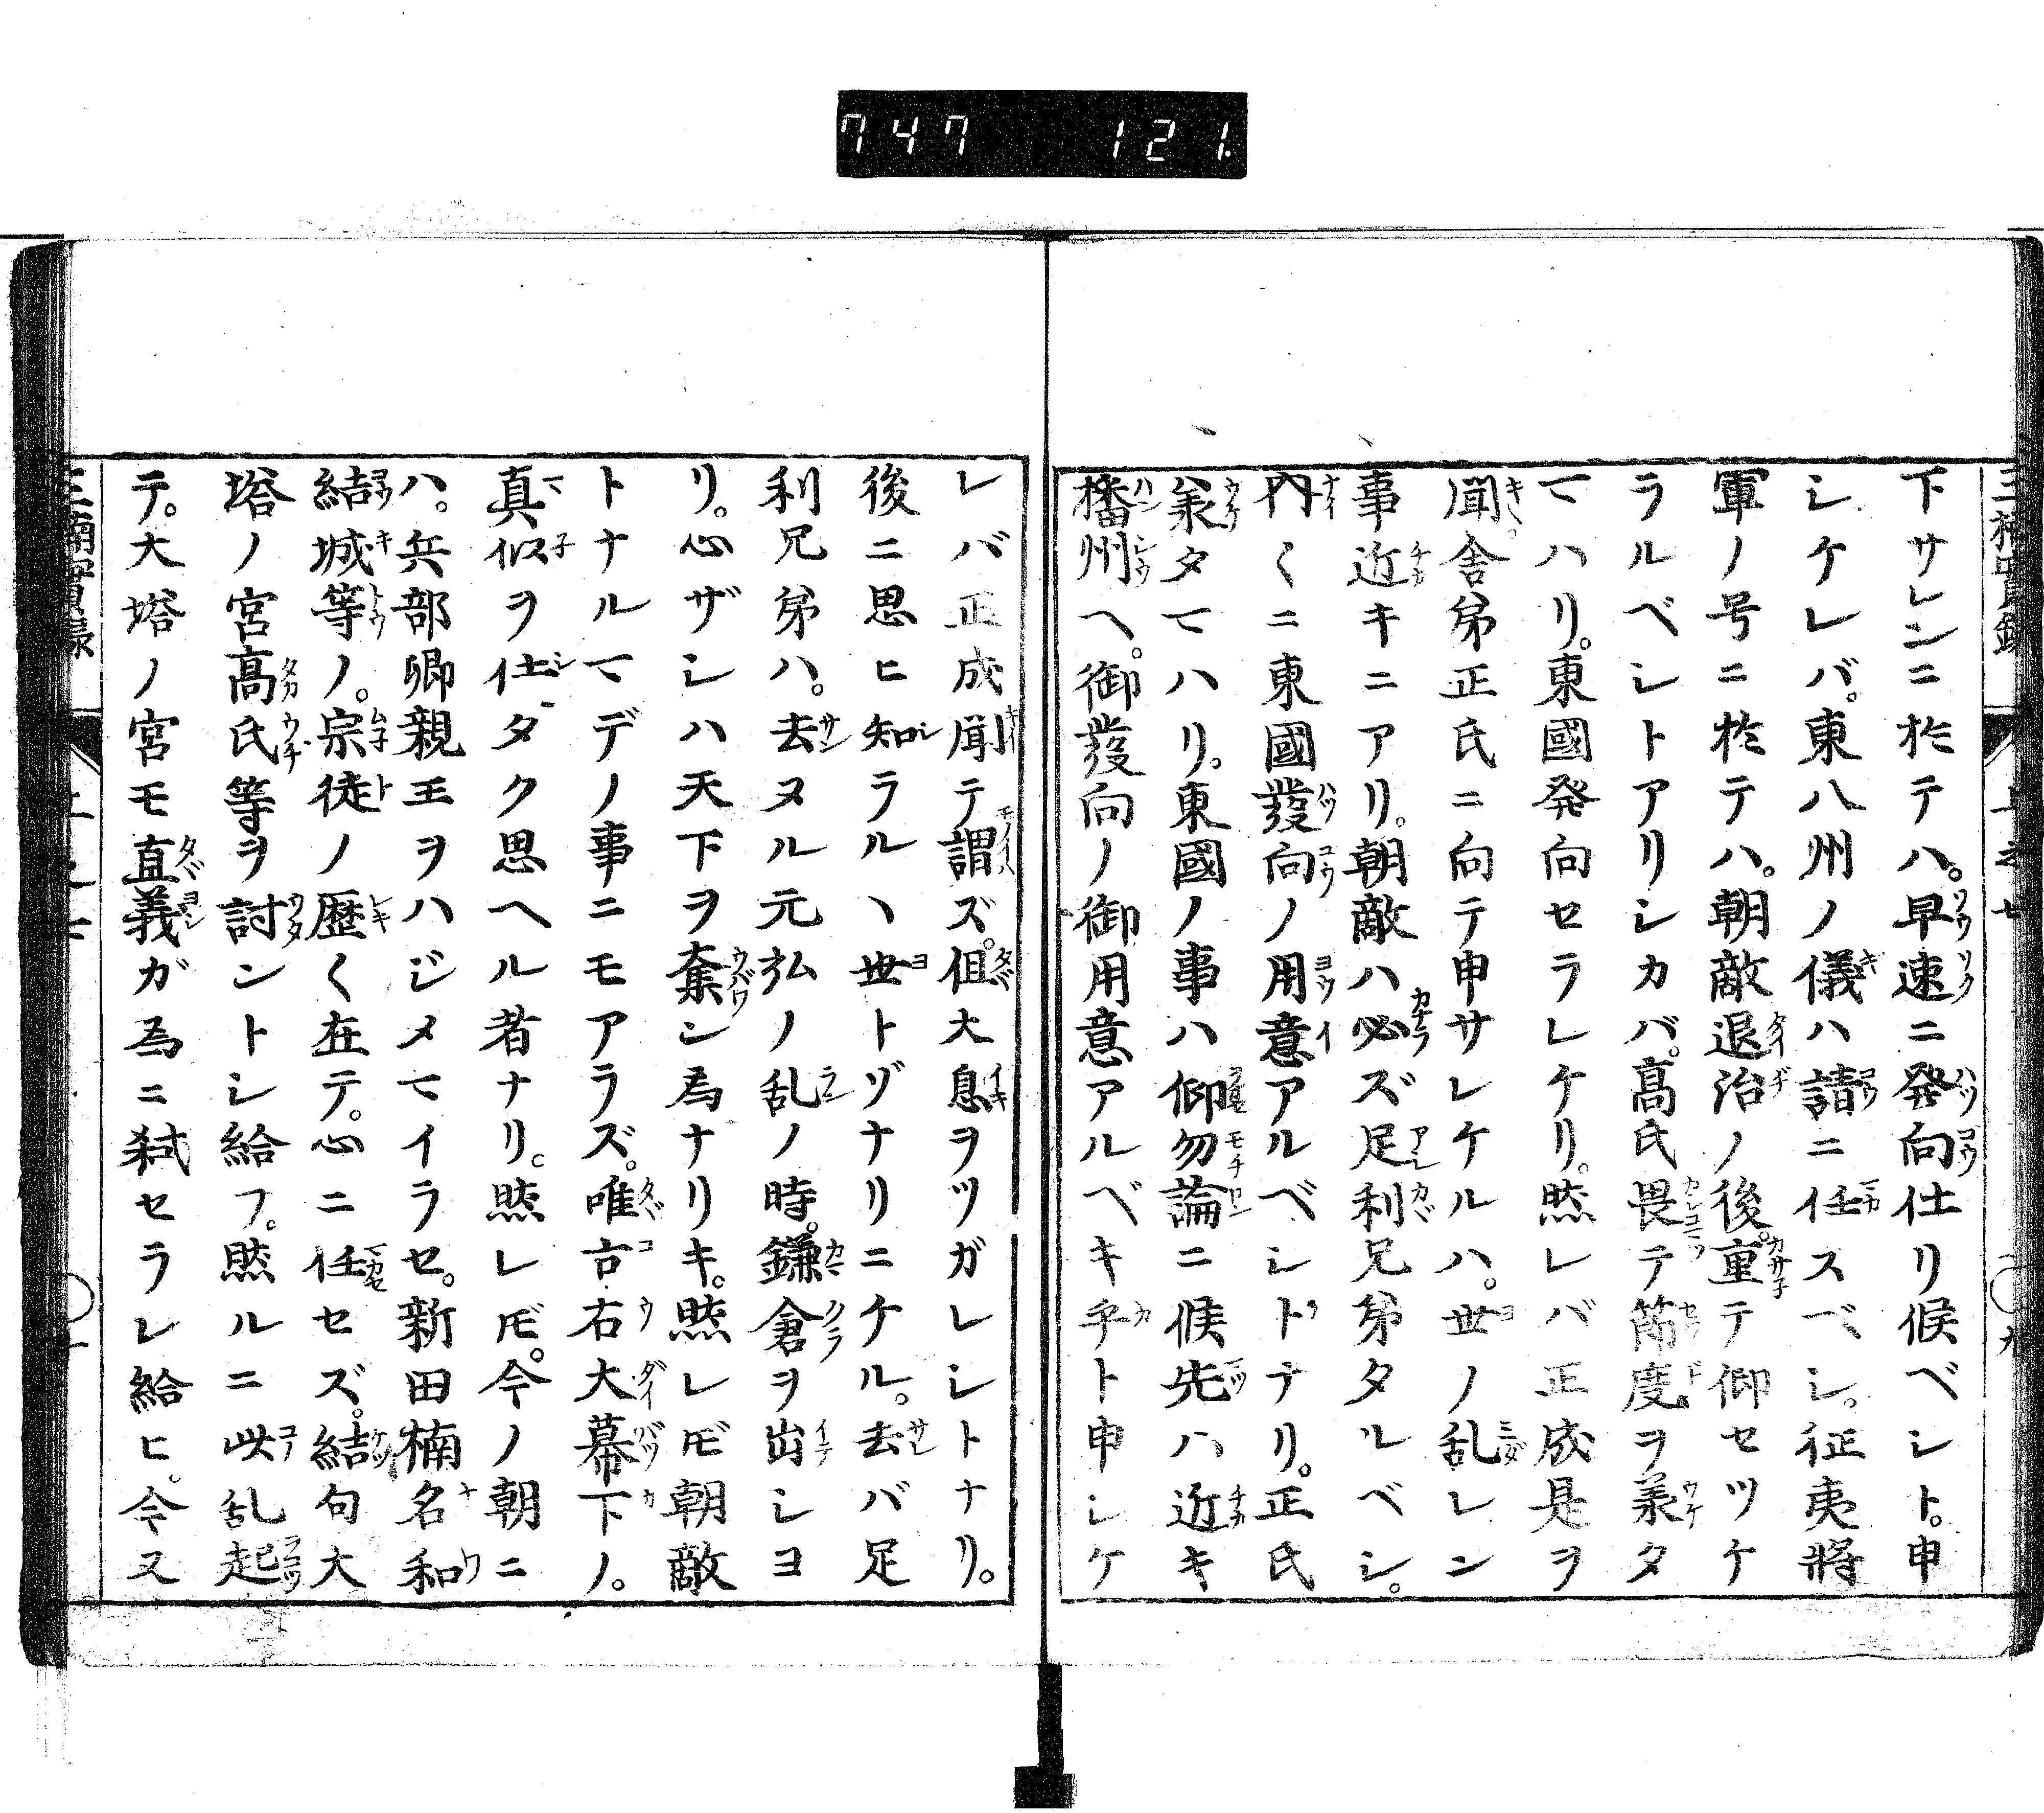 747 121.
下サレンニ於テハ。早速ニ発向仕リ候ベシト。申
シケレバ。東八州ノ儀ハ請ニ任スベシ。征夷将
軍ノ号ニ於テハ。朝敵退治ノ後。重テ仰セツケ
ラルベシトアリシカバ。髙氏畏テ節度ヲ義タ
マハリ。東國発向セラレケリ。然レバ正成是ヲ
聞舎弟正氏ニ向テ申サレケルハ。世ノ乱レン
事近キニアリ。朝敵ハ必ズ足利兄弟タルベシ。
内〱ニ東國發向ノ用意アルベシトナリ。正氏
義タマハリ。東國ノ事ハ仰勿論ニ候先ハ近キ
播州ヘ。御發向ノ御用意アルベキ乎ト申シケ
レバ正成聞テ謂ズ。但大息ヲツガレシトナリ。
後ニ思ヒ知ラルヽ世トゾナリニケル。去バ足
利兄弟ハ。去ヌル元弘ノ乱ノ時。鎌倉ヲ出シヨ
リ。心ザシハ天下ヲ奪ン為ナリキ。然レ𪜈朝敵
トナルマデノ事ニモアラズ。唯古右大幕下ノ。
真似ヲ仕タク思ヘル者ナリ。然レ𪜈。今ノ朝ニ
ハ。兵部卿親王ヲハジメマイラセ。新田楠名和
結城等ノ。宗徒ノ歴〱在テ。心ニ任セズ。結句大
塔ノ宮髙氏等ヲ討ントシ給フ。然ルニ此乱起
テ。大塔ノ宮モ直義ガ為ニ弑セラレ給ヒ。今又